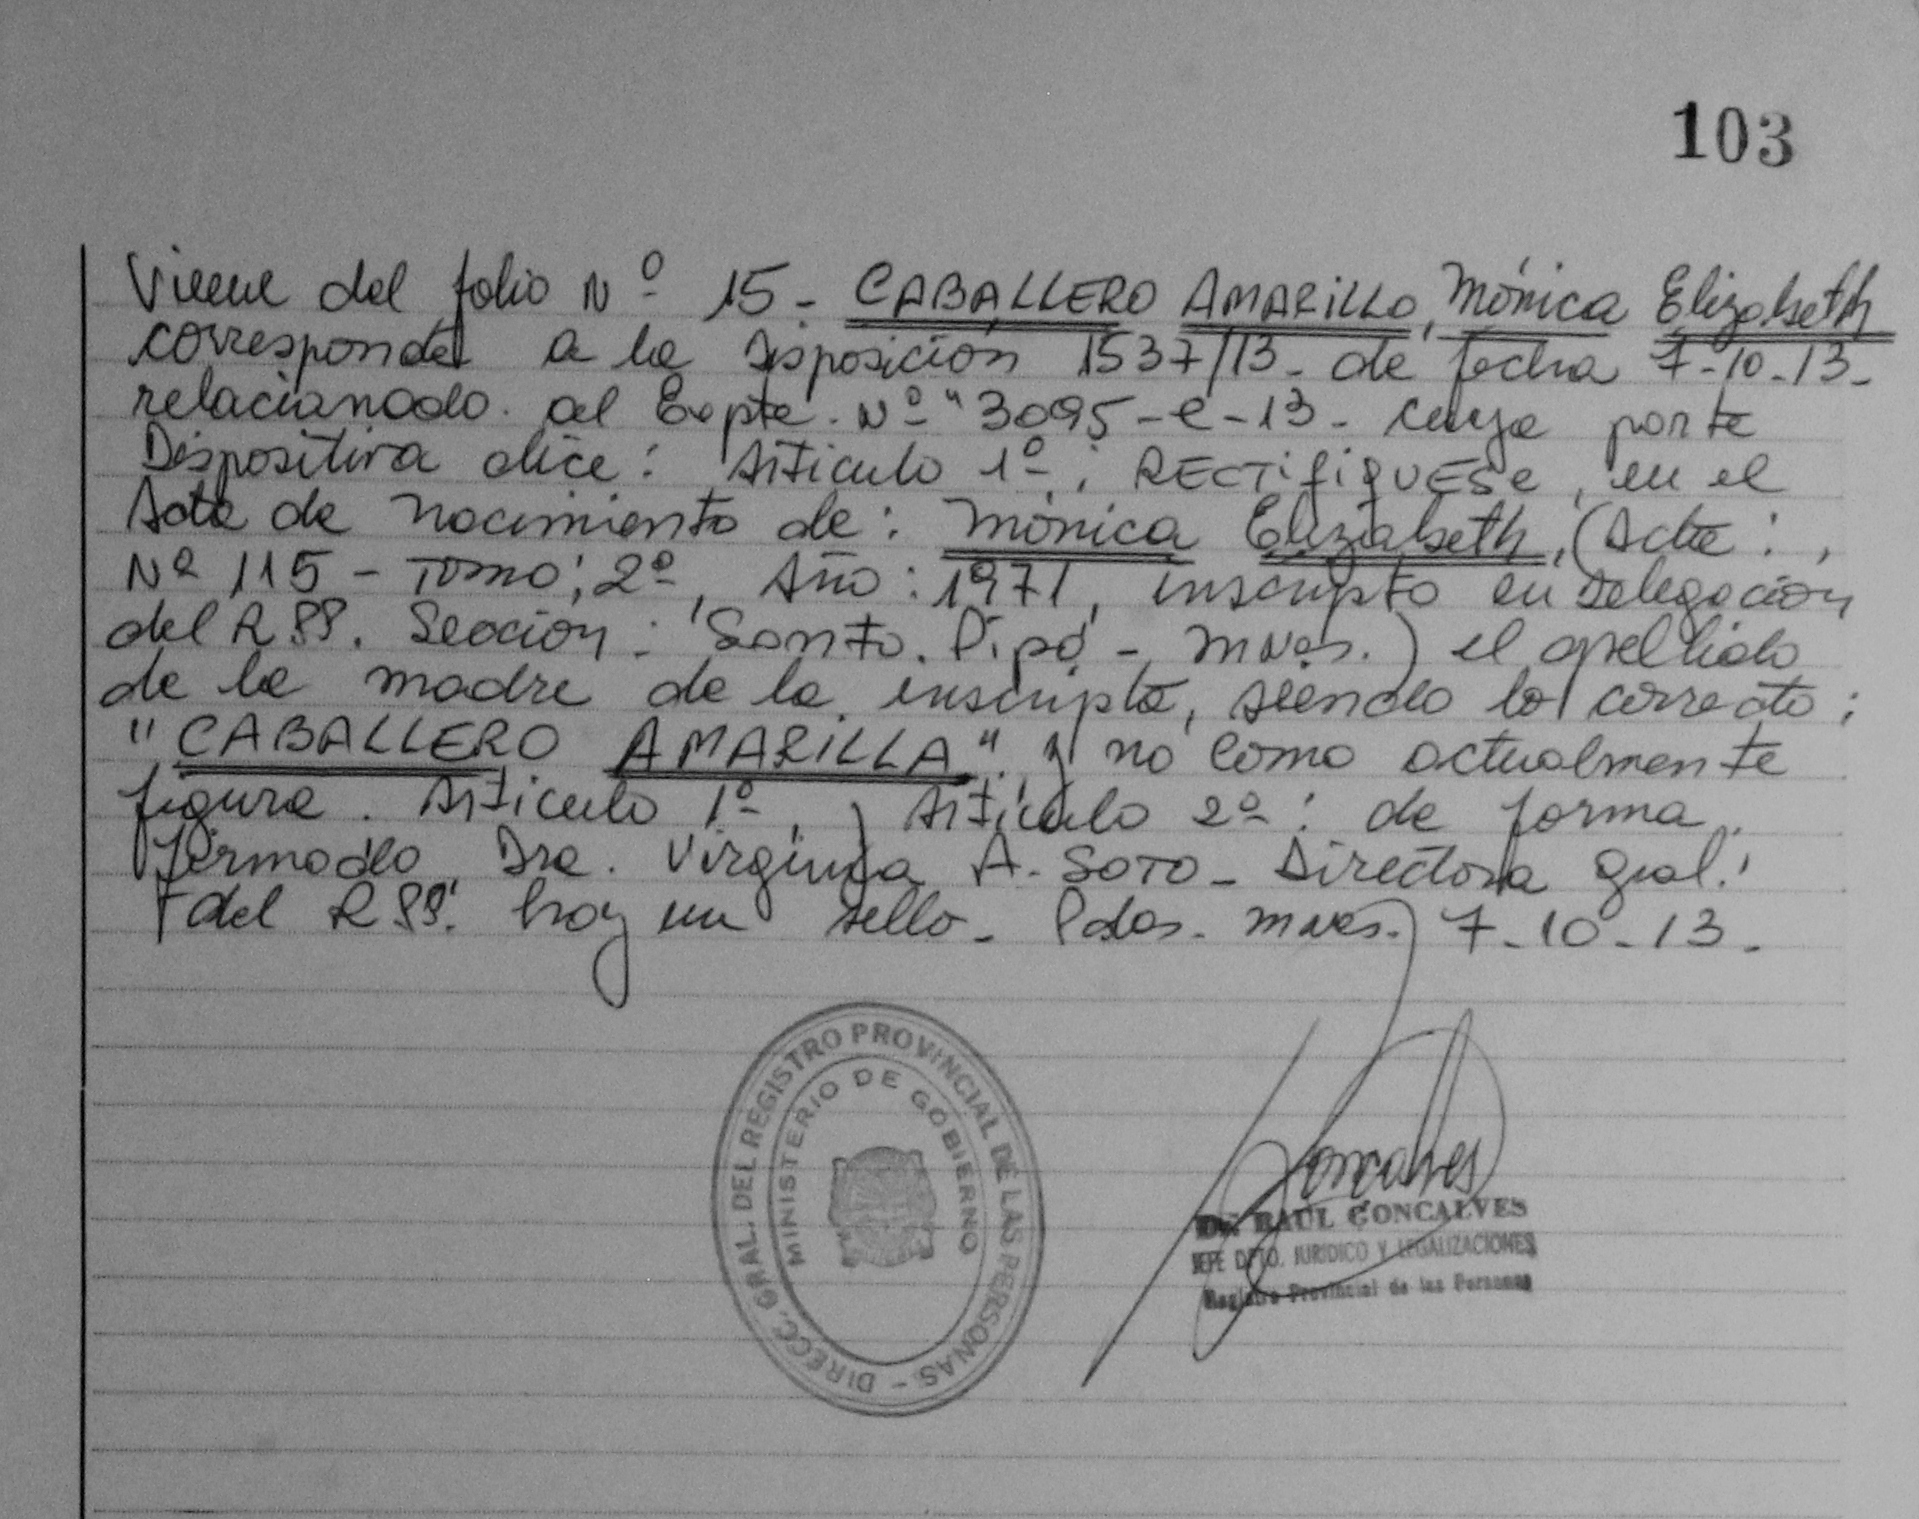 103
Viene del folio Nº 15- CABALLERO AMARILLO, Mónica Elizabeth
corresponde a la Disposición 1537/13- de fecha 7-10-13-
relacionado al Expte. Nº " 3095-e-13- cuya parte
Dispositiva dice: Artículo 1º: RECTIFIQUESE, en el
Acta de nacimiento de: Mónica Elizabeth, (Acta:,
Nº 115 - Tomo: 2º, Año: 1971, inscripto en Delegación
del R PP. Sección: Santo. Pipó - Mnes.) el apellido
de la madre de la inscripta, siendo lo correcto:
"CABALLERO AMARILLA" y no como actualmente
figura. Artículo 1º, Artículo 2º: de forma.
Firmado Dra. Virginia A. SOTO - Directora Gral.
del R PP. hay un sello- Pdas. Mnes. 7-10-13-
DIRECC. GRAL. DEL REGISTRO PROVINCIAL DE LAS PERSONAS -
MINISTERIO DE GOBIERNO
Goncalves
Dr. RAUL GONCALVES
JEFE DPTO. JURIDICO Y LEGALIZACIONES
Registro Provincial de las Personas